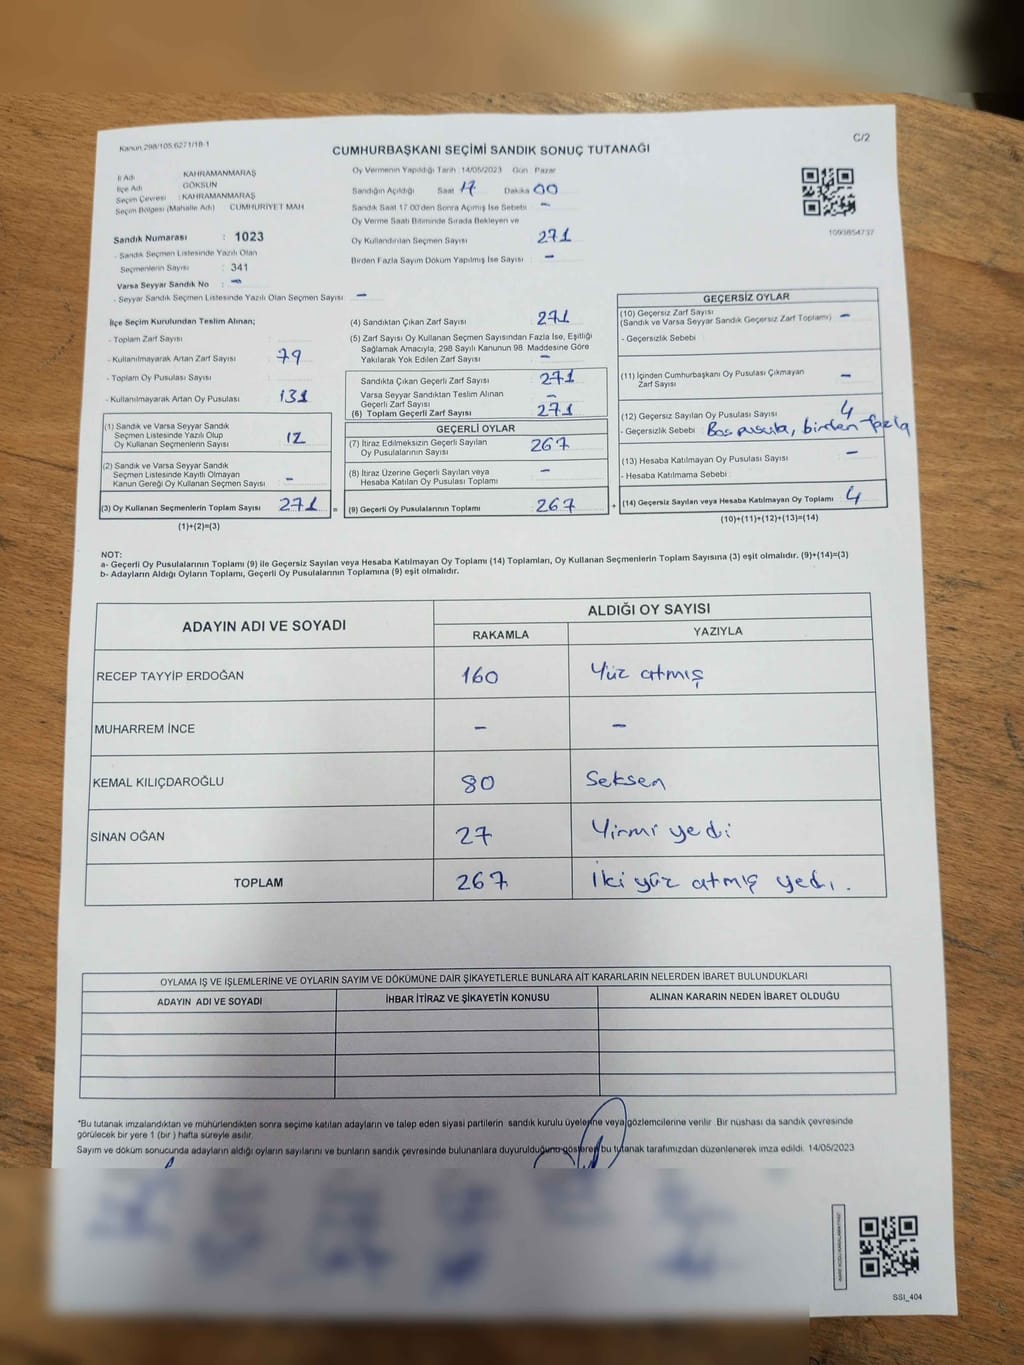 Kanun 298/105,6271/18-1
C/2
CUMHURBAŞKANI SEÇİMİ SANDIK SONUÇ TUTANAĞI
İl Adı KAHRAMANMARAŞ
İlçe Adı GÖKSUN
Seçim Çevresi : KAHRAMANMARAŞ
Seçim Bölgesi (Mahalle Adı) CUMHURİYET MAH
Sandık Numarası : 1023
- Sandık Seçmen Listesinde Yazılı Olan
Seçmenlerin Sayısı : 341
Varsa Seyyar Sandık No : -
- Seyyar Sandık Seçmen Listesinde Yazılı Olan Seçmen Sayısı: -
Oy Vermenin Yapıldığı Tarih : 14/05/2023 Gün : Pazar
Sandığın Açıldığı Saat 17 Dakika 00
Sandık Saat 17:00'den Sonra Açmış İse Sebebi : -
Oy Verme Saati Bitiminde Sırada Bekleyen ve
Oy Kullandırılan Seçmen Sayısı 271
Birden Fazla Sayım Döküm Yapılmış İse Sayısı : -
1093854737
İlçe Seçim Kurulundan Teslim Alınan;
- Toplam Zarf Sayısı :
- Kullanılmayarak Artan Zarf Sayısı : 79
- Toplam Oy Pusulası Sayısı :
- Kullanılmayarak Artan Oy Pusulası : 131
(1) Sandık ve Varsa Seyyar Sandık
Seçmen Listesinde Yazılı Olup
Oy Kullanan Seçmenlerin Sayısı 12
(2) Sandık ve Varsa Seyyar Sandık
Seçmen Listesinde Kayıtlı Olmayan
Kanun Gereği Oy Kullanan Seçmen Sayısı -
(3) Oy Kullanan Seçmenlerin Toplam Sayısı 271
(1)+(2)=(3)
(4) Sandıktan Çıkan Zarf Sayısı 271
(5) Zarf Sayısı Oy Kullanan Seçmen Sayısından Fazla İse, Eşitliği
Sağlamak Amacıyla, 298 Sayılı Kanunun 98. Maddesine Göre
Yakılarak Yok Edilen Zarf Sayısı -
Sandıkta Çıkan Geçerli Zarf Sayısı 271
Varsa Seyyar Sandıktan Teslim Alınan
Geçerli Zarf Sayısı -
(6) Toplam Geçerli Zarf Sayısı 271
GEÇERLİ OYLAR
(7) İtiraz Edilmeksizin Geçerli Sayılan
Oy Pusulalarının Sayısı 267
(8) İtiraz Üzerine Geçerli Sayılan veya
Hesaba Katılan Oy Pusulası Toplamı -
= (9) Geçerli Oy Pusulalarının Toplamı 267
GEÇERSİZ OYLAR
(10) Geçersiz Zarf Sayısı
(Sandık ve Varsa Seyyar Sandık Geçersiz Zarf Toplamı) -
- Geçersizlik Sebebi :
(11) İçinden Cumhurbaşkanı Oy Pusulası Çıkmayan
Zarf Sayısı -
(12) Geçersiz Sayılan Oy Pusulası Sayısı 4
- Geçersizlik Sebebi : Boş pusula, birden fazla
(13) Hesaba Katılmayan Oy Pusulası Sayısı -
- Hesaba Katılmama Sebebi :
+ (14) Geçersiz Sayılan veya Hesaba Katılmayan Oy Toplamı 4
(10)+(11)+(12)+(13)=(14)
NOT:
a- Geçerli Oy Pusulalarının Toplamı (9) ile Geçersiz Sayılan veya Hesaba Katılmayan Oy Toplamı (14) Toplamları, Oy Kullanan Seçmenlerin Toplam Sayısına (3) eşit olmalıdır. (9)+(14)=(3)
b- Adayların Aldığı Oyların Toplamı, Geçerli Oy Pusulalarının Toplamına (9) eşit olmalıdır.
ADAYIN ADI VE SOYADI ALDIĞI OY SAYISI
RAKAMLA YAZIYLA
RECEP TAYYİP ERDOĞAN 160 Yüz atmış
MUHARREM İNCE - -
KEMAL KILIÇDAROĞLU 80 Seksen
SİNAN OĞAN 27 Yirmi yedi
TOPLAM 267 İki yüz atmış yedi.
OYLAMA İŞ VE İŞLEMLERİNE VE OYLARIN SAYIM VE DÖKÜMÜNE DAİR ŞİKAYETLERLE BUNLARA AİT KARARLARIN NELERDEN İBARET BULUNDUKLARI
ADAYIN ADI VE SOYADI İHBAR İTİRAZ VE ŞİKAYETİN KONUSU ALINAN KARARIN NEDEN İBARET OLDUĞU
*Bu tutanak imzalandıktan ve mühürlendikten sonra seçime katılan adayların ve talep eden siyasi partilerin sandık kurulu üyelerine veya gözlemcilerine verilir. Bir nüshası da sandık çevresinde
görülecek bir yere 1 (bir) hafta süreyle asılır.
Sayım ve döküm sonucunda adayların aldığı oyların sayılarını ve bunların sandık çevresinde bulunanlara duyurulduğunu gösteren bu tutanak tarafımızdan düzenlenerek imza edildi. 14/05/2023
SSI_404